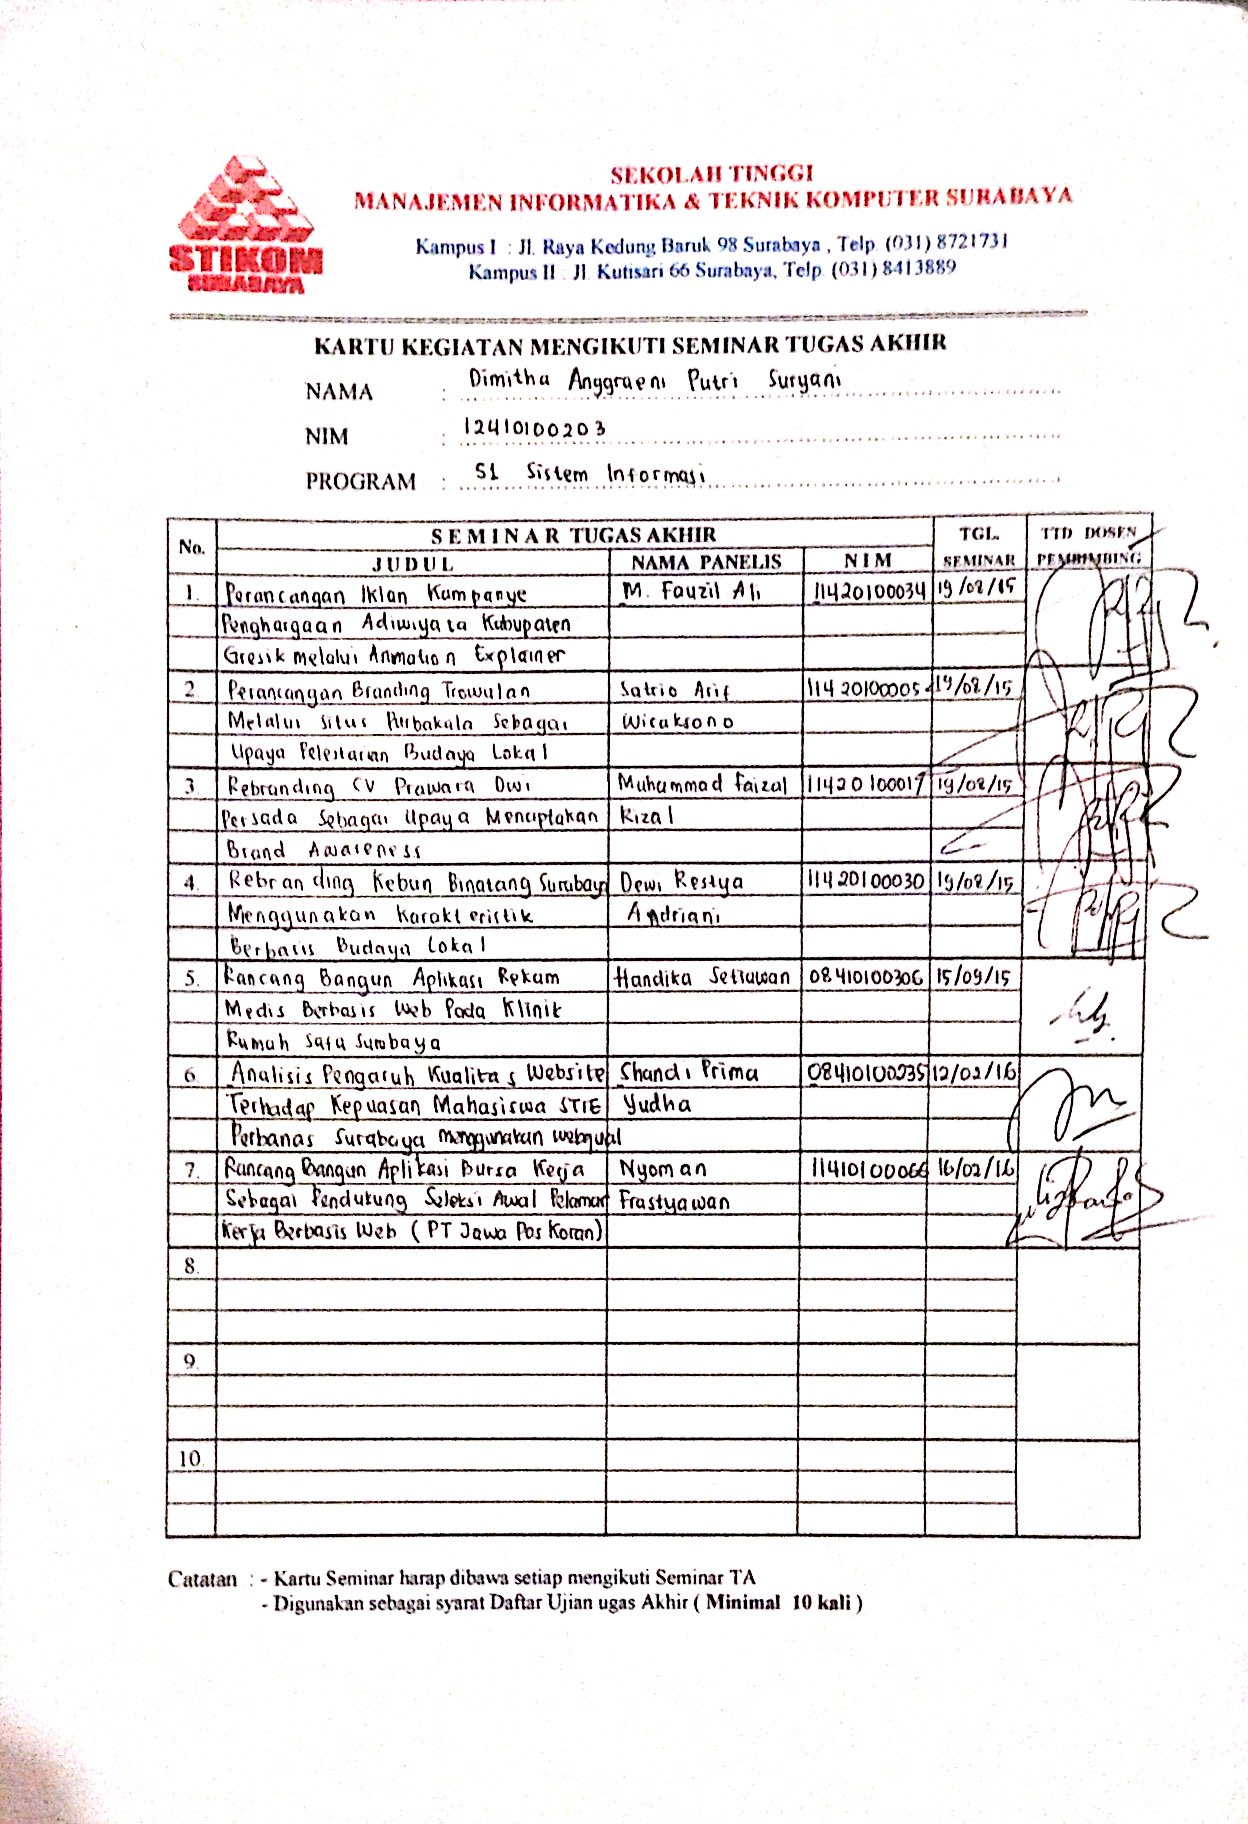 STIKOM
SURABAYA
SEKOLAH TINGGI
MANAJEMEN INFORMATIKA & TEKNIK KOMPUTER SURABAYA
Kampus I : Jl. Raya Kedung Baruk 98 Surabaya , Telp. (031) 8721731
Kampus II : Jl. Kutisari 66 Surabaya, Telp. (031) 8413889
KARTU KEGIATAN MENGIKUTI SEMINAR TUGAS AKHIR
NAMA : Dimitha Anggraeni Putri Suryani
NIM : 12410100203
PROGRAM : S1 Sistem Informasi
No. SEMINAR TUGAS AKHIR TGL. TTD DOSEN
JUDUL NAMA PANELIS NIM SEMINAR PEMBIMBING
1. Perancangan Iklan Kampanye M. Fauzil Ali 11420100034 19/08/15
Penghargaan Adiwiyata Kabupaten
Gresik melalui Animation Explainer
2. Perancangan Branding Trowulan Satrio Arif 11420100005 19/08/15
Melalui Situs Purbakala Sebagai Wicaksono
Upaya Pelestarian Budaya Lokal
3. Rebranding CV Prawara Dwi Muhammad Faizal 11420100017 19/08/15
Persada Sebagai Upaya Menciptakan Rizal
Brand Awareness
4. Rebranding Kebun Binatang Surabaya Dewi Restya 11420100030 19/08/15
Menggunakan Karakteristik Andriani
Berbasis Budaya Lokal
5. Rancang Bangun Aplikasi Rekam Handika Setiawan 08410100306 15/09/15
Medis Berbasis Web Pada Klinik
Rumah Sata Surabaya
6. Analisis Pengaruh Kualitas Website Shandi Prima 08410100235 12/02/16
Terhadap Kepuasan Mahasiswa STIE Yudha
Perbanas Surabaya menggunakan webqual
7. Rancang Bangun Aplikasi Bursa Kerja Nyoman 11410100066 16/02/16
Sebagai Pendukung Seleksi Awal Pelamar Frastyawan
Kerja Berbasis Web (PT Jawa Pos Koran)
8.
9.
10.
Catatan : - Kartu Seminar harap dibawa setiap mengikuti Seminar TA
- Digunakan sebagai syarat Daftar Ujian ugas Akhir ( Minimal 10 kali )